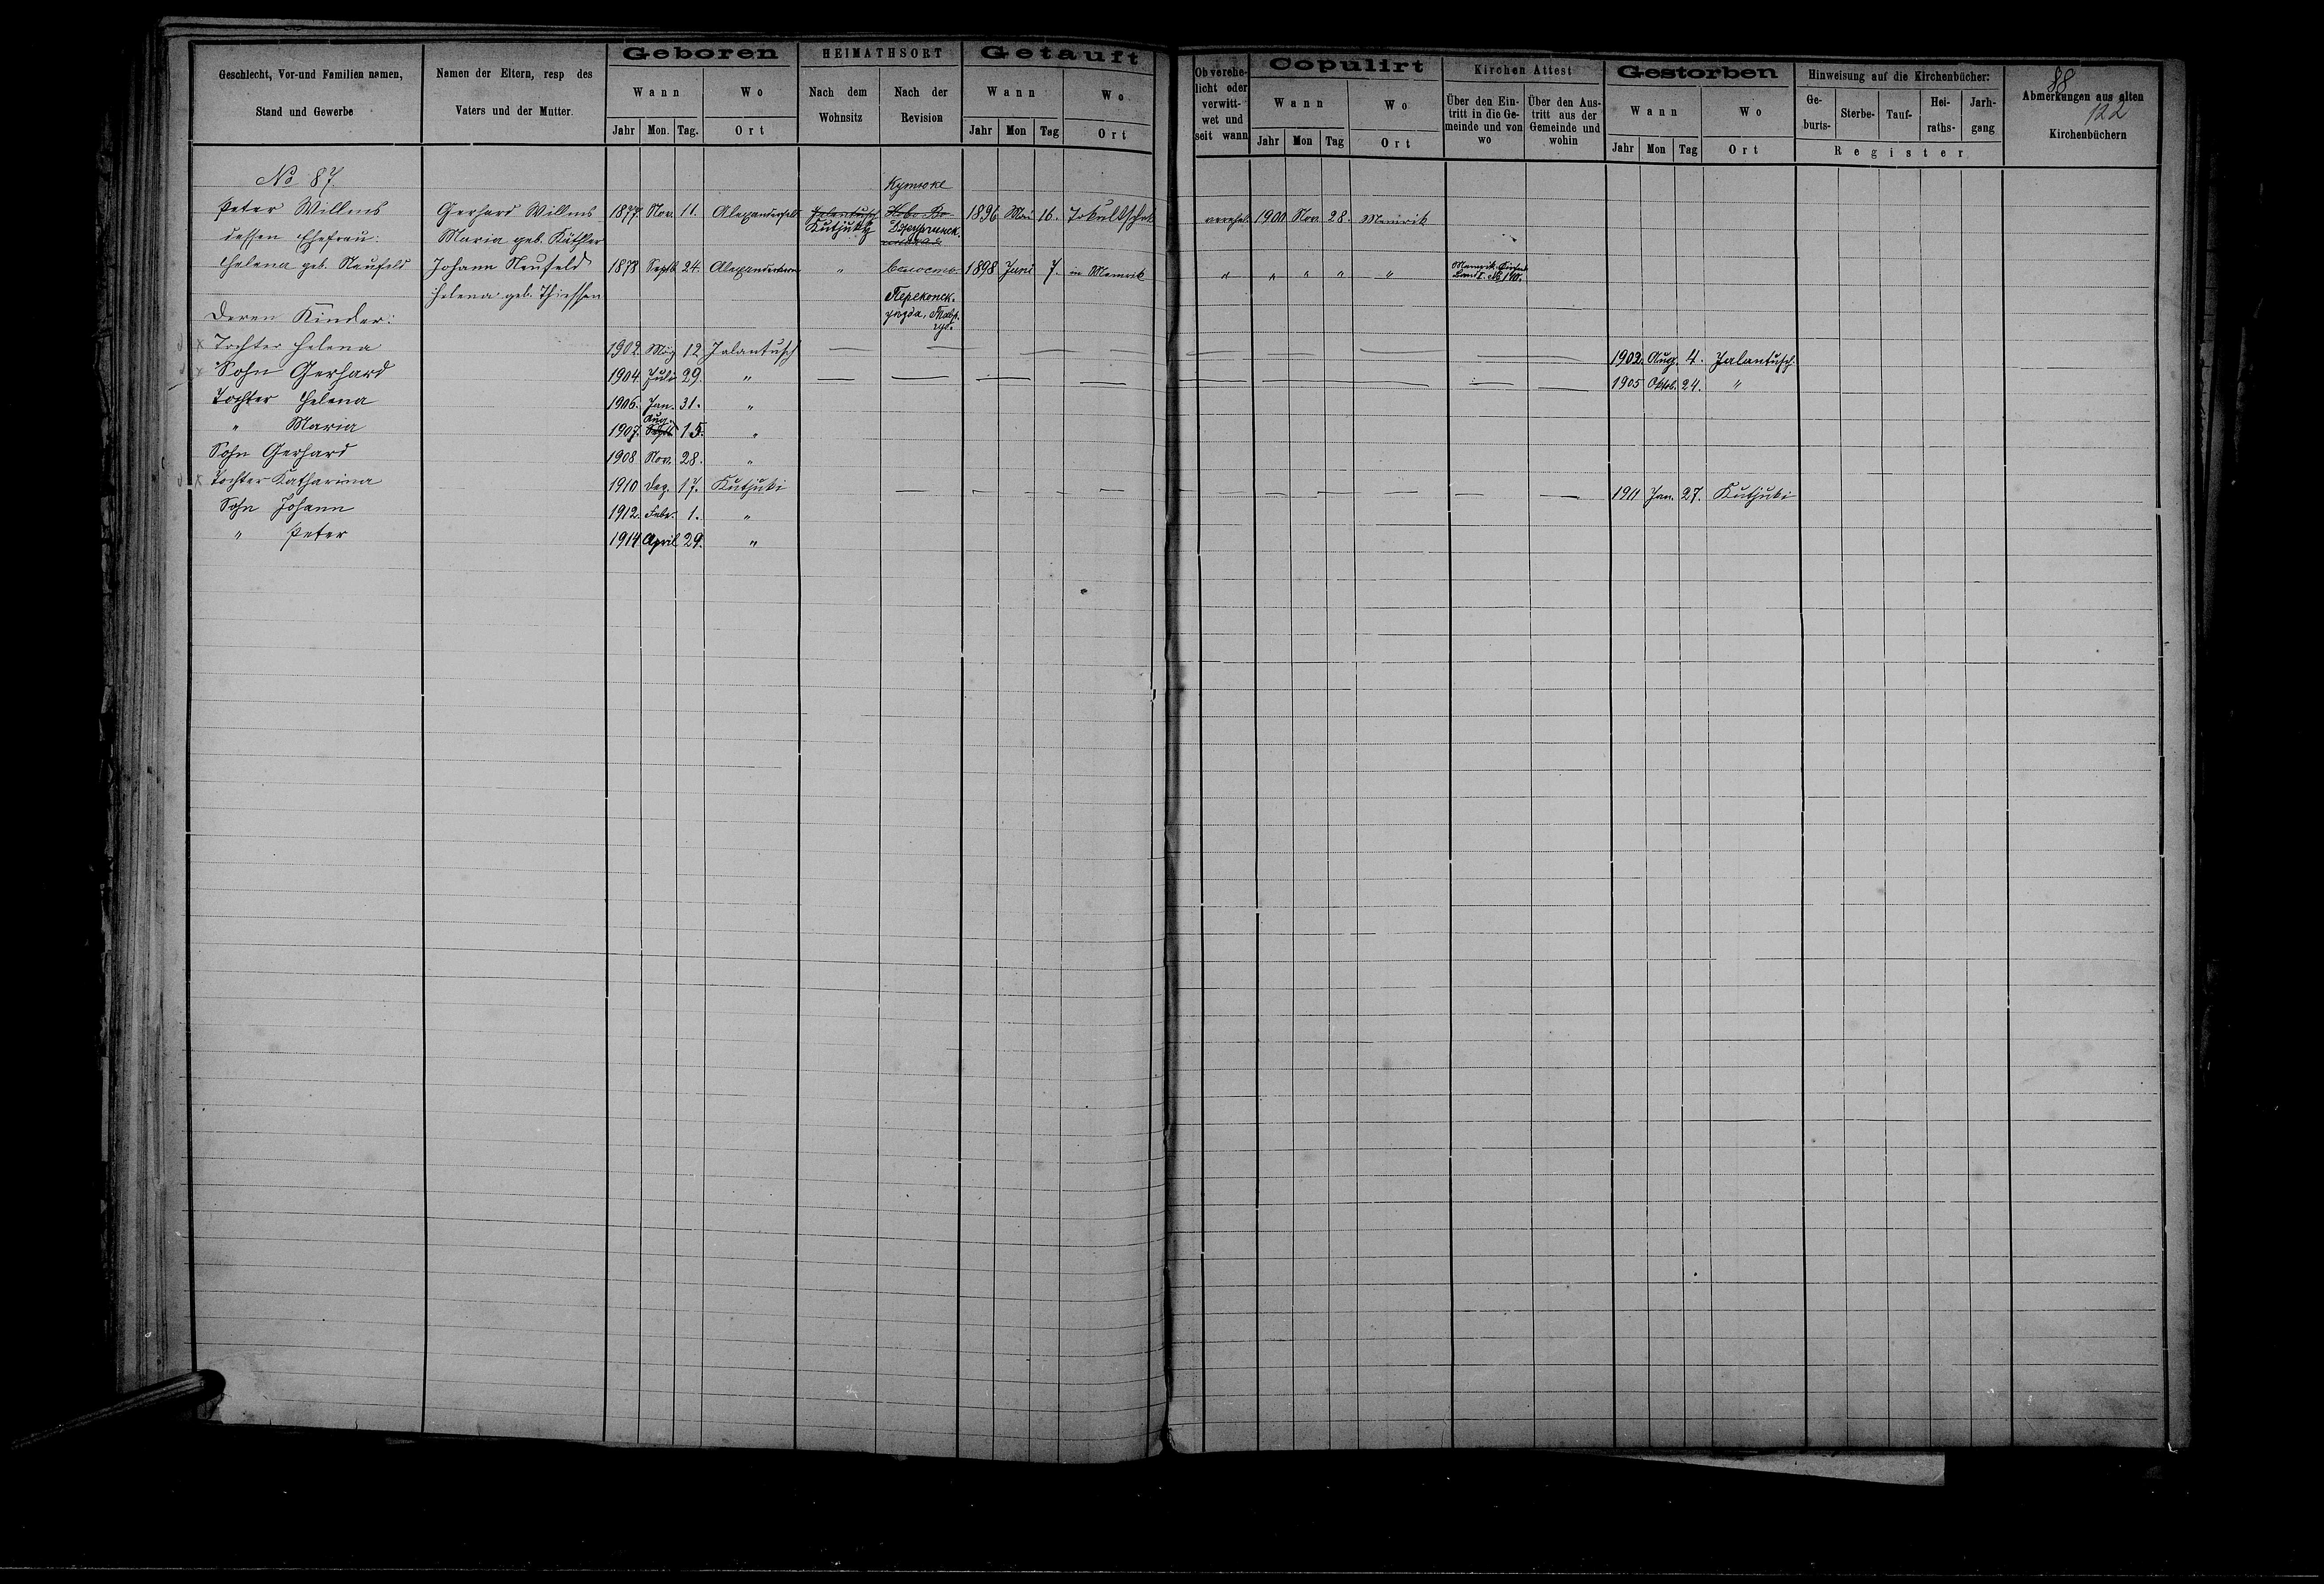 Geschlecht, Vor-und Familien namen,
Stand und Gewerbe
Namen der Eltern, resp des
Vaters und der Mutter.
Geboren
Wann
Wo
Jahr Mon. Tag. Ort
HEIMATHSORT
Nach dem Wohnsitz
Nach der Revision
Getauft
Wann
Wo
Jahr Mon Tag Ort
Ob verehe-
licht oder
verwitt-
wet und
seit wann
Copulirt
Wann
Wo
Jahr Mon Tag Ort
Kirchen Attest
Über den Ein-
tritt in die Ge-
meinde und von
wo
Über den Aus-
tritt aus der
Gemeinde und
wohin
Gestorben
Wann
Wo
Jahr Mon Tag Ort
Hinweisung auf die Kirchenbücher:
Ge-
burts-
Sterbe-
Tauf-
Hei-
raths-
Jarh-
gang
Register
88
Abmerkungen aus alten
122
Kirchenbüchern
No 87.
Кутюке
Peter Willms Gerhard Willms 1877. Nov. 11. Alexanderfeld Jalantusch 1896 Mai 16. verehel. 1900 Nov. 28. Memrik
Kutjuki
dessen Ehefrau: Maria geb. Käthler
Helena geb. Neufeld Johann Neufeld 1878 Septb. 24. " волость. 1898 Juni 7. in Memrik " " " " "
Helena geb. Thiessen Перекопск.
уезда, Тавр.
губ.
Deren Kinder:
x Tochter Helena 1902. Mäz 12 Jalantusch — — — — — — — — 1902. Aug. 4. Jalantusch.
x Sohn Gerhard 1904. Juli 29. " — — — — — — — — — 1905 Oktob. 24. "
Tochter Helena 1906. Jan. 31. "
Aug.
" Maria 1907. Septb. 15. "
Sohn Gerhard 1908 Nov. 28. "
x Tochter Katharina 1910 Dez. 17. Kutjuki — — — — — — — — — — 1911 Jan. 27. Kutjuki
Sohn Johann 1912. Febr. 1. "
" Peter 1914 April 29. "